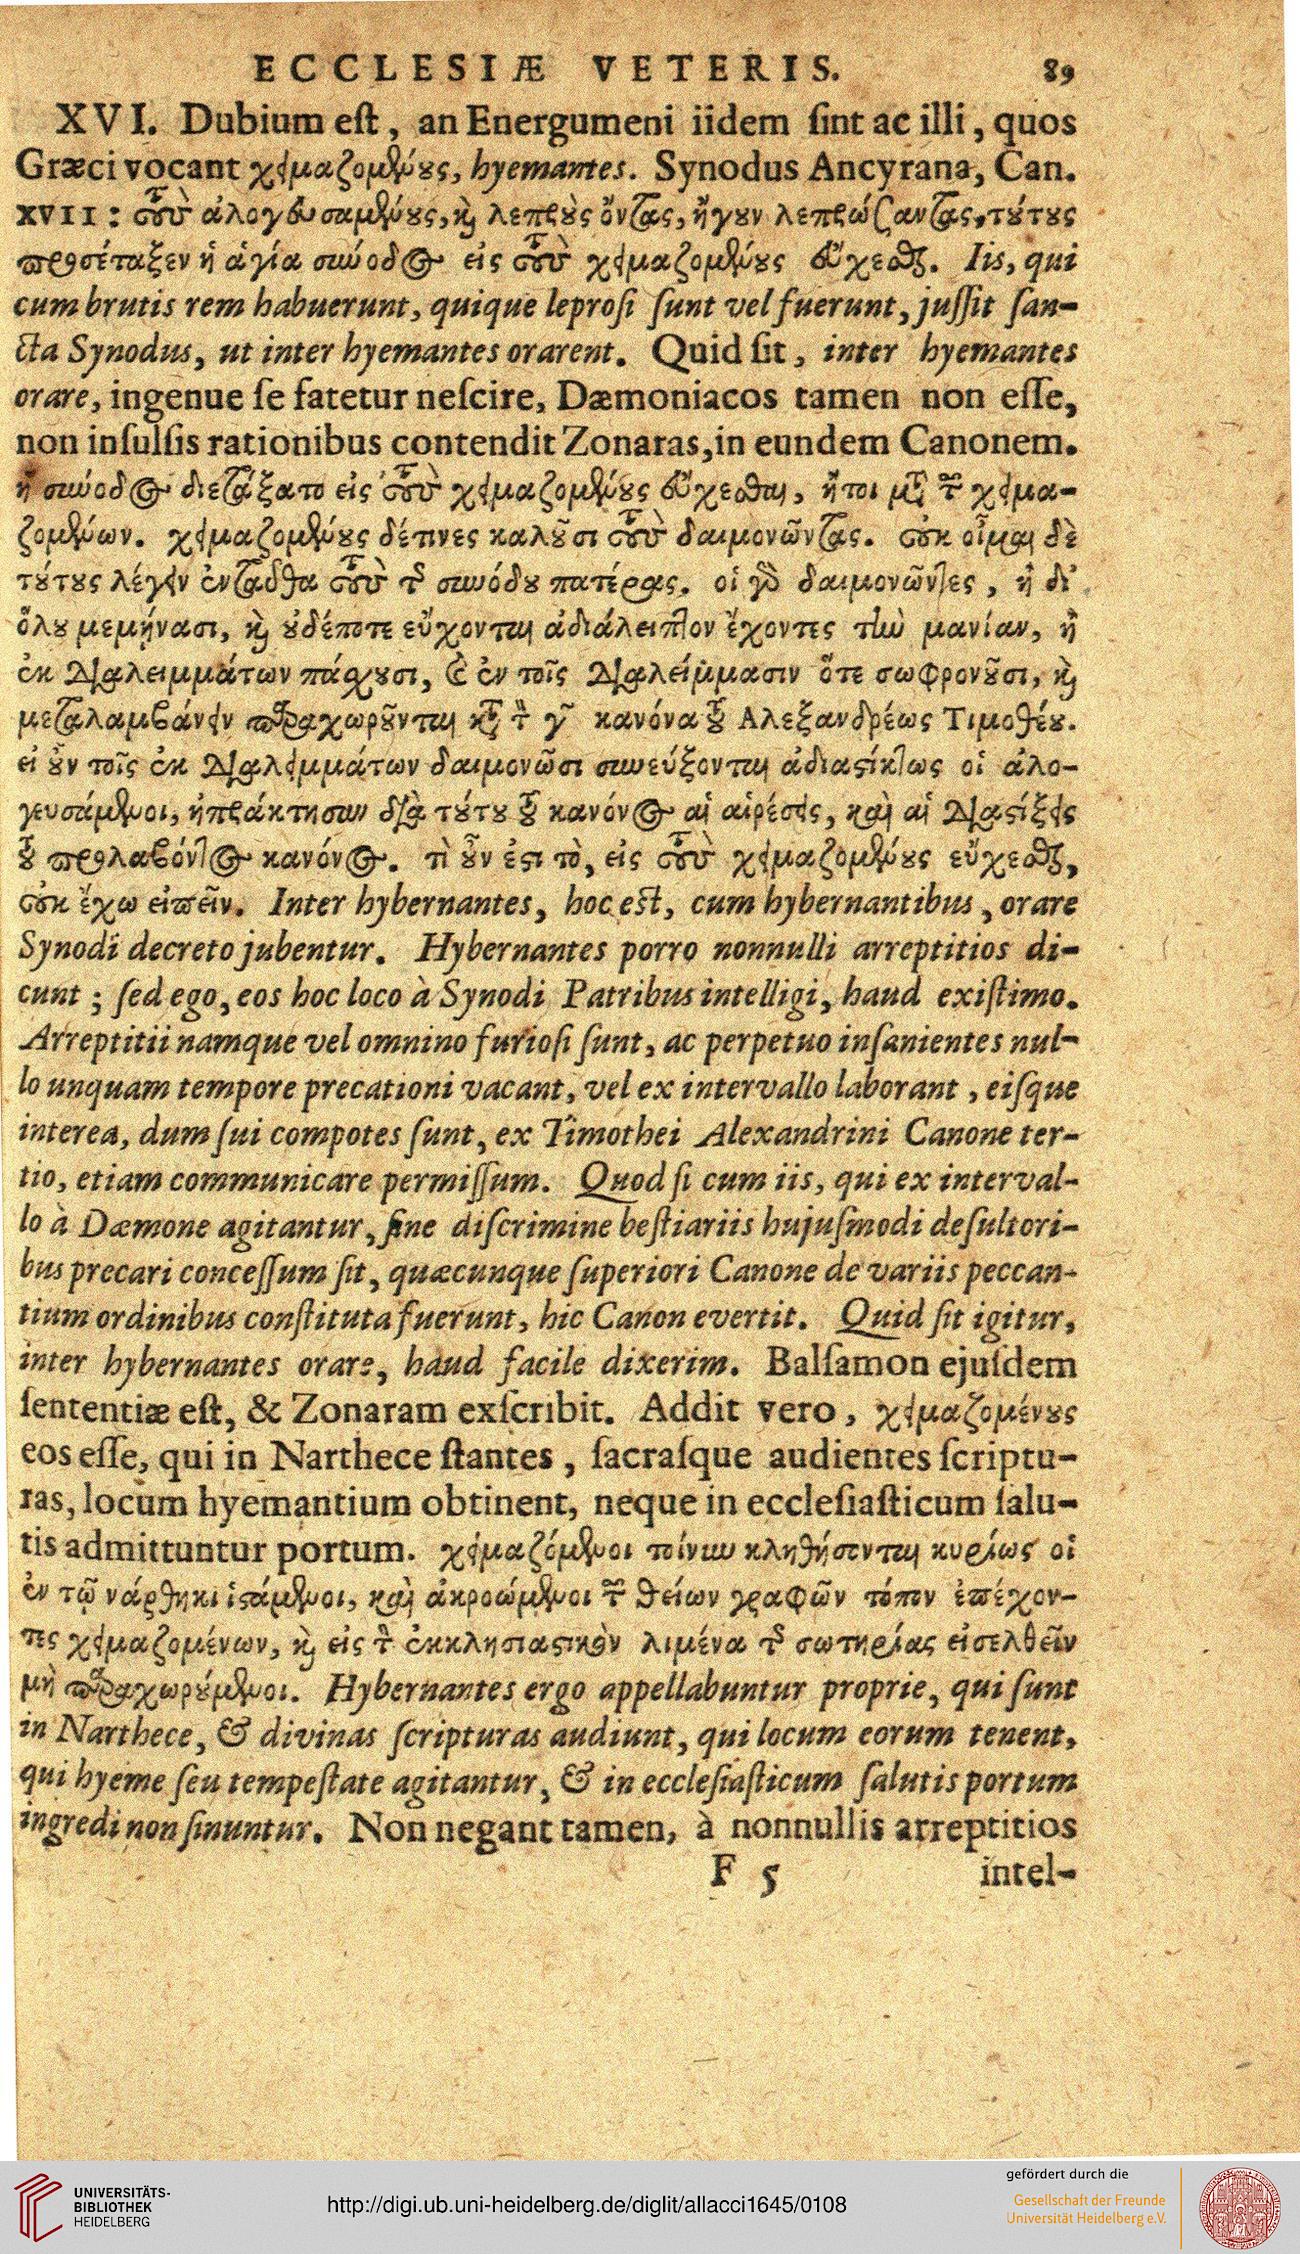 ECCLESIÆ VETERIS. 89
XVI. Dubium eſt, an Energumeni iidem ſint ac illi, quos
Græci vocant χειμαζομένους, hyemantes. Synodus Ancyrana, Can.
XVII: τοὺς ἀλογευσαμένους, καὶ λεπροὺς ὄντας, ἤγουν λεπρώσαντας, τούτους
προσέταξεν ἡ ἁγία σύνοδος εἰς τοὺς χειμαζομένους εὔχεσθαι. Iis, qui
cum brutis rem habuerunt, quique leproſi ſunt vel fuerunt, juſſit ſan-
cta Synodus, ut inter hyemantes orarent. Quid ſit, inter hyemantes
orare, ingenue ſe fatetur neſcire, Dæmoniacos tamen non eſſe,
non inſulſis rationibus contendit Zonaras, in eundem Canonem.
ἡ σύνοδος διετάξατο εἰς τοὺς χειμαζομένους εὔχεσθαι, ἤτοι μετὰ τῶν χειμα-
ζομένων. χειμαζομένους δέ τινες καλοῦσι τοὺς δαιμονῶντας. οὐκ οἶμαι δὲ
τούτους λέγειν ἐνταῦθα τοὺς τῆς συνόδου πατέρας. οἱ γὰρ δαιμονῶντες, ἢ δι'
ὅλου μεμήνασι, καὶ οὐδέποτε εὔχονται ἀδιάλειπτον ἔχοντες τὴν μανίαν, ἢ
ἐκ διαλειμμάτων πάσχουσι, καὶ ἐν τοῖς διαλείμμασιν ὅτε σωφρονοῦσι, καὶ
μεταλαμβάνειν παραχωροῦνται κατὰ τὸν γ' κανόνα τοῦ Αλεξανδρέως Τιμοθέου.
εἰ οὖν τοῖς ἐκ διαλειμμάτων δαιμονῶσι συνεύξονται ἀδιαστίκτως οἱ ἀλο-
γευσάμενοι, ἠπράκτησαν διὰ τούτου τοῦ κανόνος αἱ αἱρέσεις, καὶ αἱ διαστίξεις
τοῦ προλαβόντος κανόνος. τὶ οὖν ἐστι τὸ, εἰς τοὺς χειμαζομένους εὔχεσθαι,
οὐκ ἔχω εἰπεῖν. Inter hybernantes, hoc eſt, cum hybernantibus, orare
Synodi decreto jubentur. Hybernantes porro nonnulli arreptitios di-
cunt; ſed ego, eos hoc loco à Synodi Patribus intelligi, haud exiſtimo.
Arreptitii namque vel omnino furioſi ſunt, ac perpetuo inſanientes nul-
lo unquam tempore precationi vacant, vel ex intervallo laborant, eiſque
interea, dum ſui compotes ſunt, ex Timothei Alexandrini Canone ter-
tio, etiam communicare permiſſum. Quod ſi cum iis, qui ex interval-
lo à Dæmone agitantur, ſine diſcrimine beſtiariis hujuſmodi deſultori-
bus precari conceſſum ſit, quæcunque ſuperiori Canone de variis peccan-
tium ordinibus conſtituta fuerunt, hic Canon evertit. Quid ſit igitur,
inter hybernantes orare, haud facile dixerim. Balſamon ejuſdem
ſententiæ eſt, & Zonaram exſcribit. Addit vero, χειμαζομένους
eos eſſe, qui in Narthece ſtantes, ſacraſque audientes ſcriptu-
ras, locum hyemantium obtinent, neque in eccleſiaſticum ſalu-
tis admittuntur portum. χειμαζόμενοι τοίνυν κληθήσονται κυρίως οἱ
ἐν τῷ νάρθηκι ἱστάμενοι, καὶ ἀκροώμενοι τῶν θείων γραφῶν τόπον ἐπέχον-
τες χειμαζομένων, καὶ εἰς τὸν ἐκκλησιαστικὸν λιμένα τῆς σωτηρίας εἰσελθεῖν
μὴ παραχωρούμενοι. Hybernantes ergo appellabuntur proprie, qui ſunt
in Narthece, & divinas ſcripturas audiunt, qui locum eorum tenent,
qui hyeme ſeu tempeſtate agitantur, & in eccleſiaſticum ſalutis portum
ingredi non ſinuntur. Non negant tamen, à nonnullis arreptitios
F 5 intel-
UNIVERSITÄTS-
BIBLIOTHEK
HEIDELBERG
http://digi.ub.uni-heidelberg.de/diglit/allacci1645/0108
gefördert durch die
Gesellschaft der Freunde
Universität Heidelberg e.V.